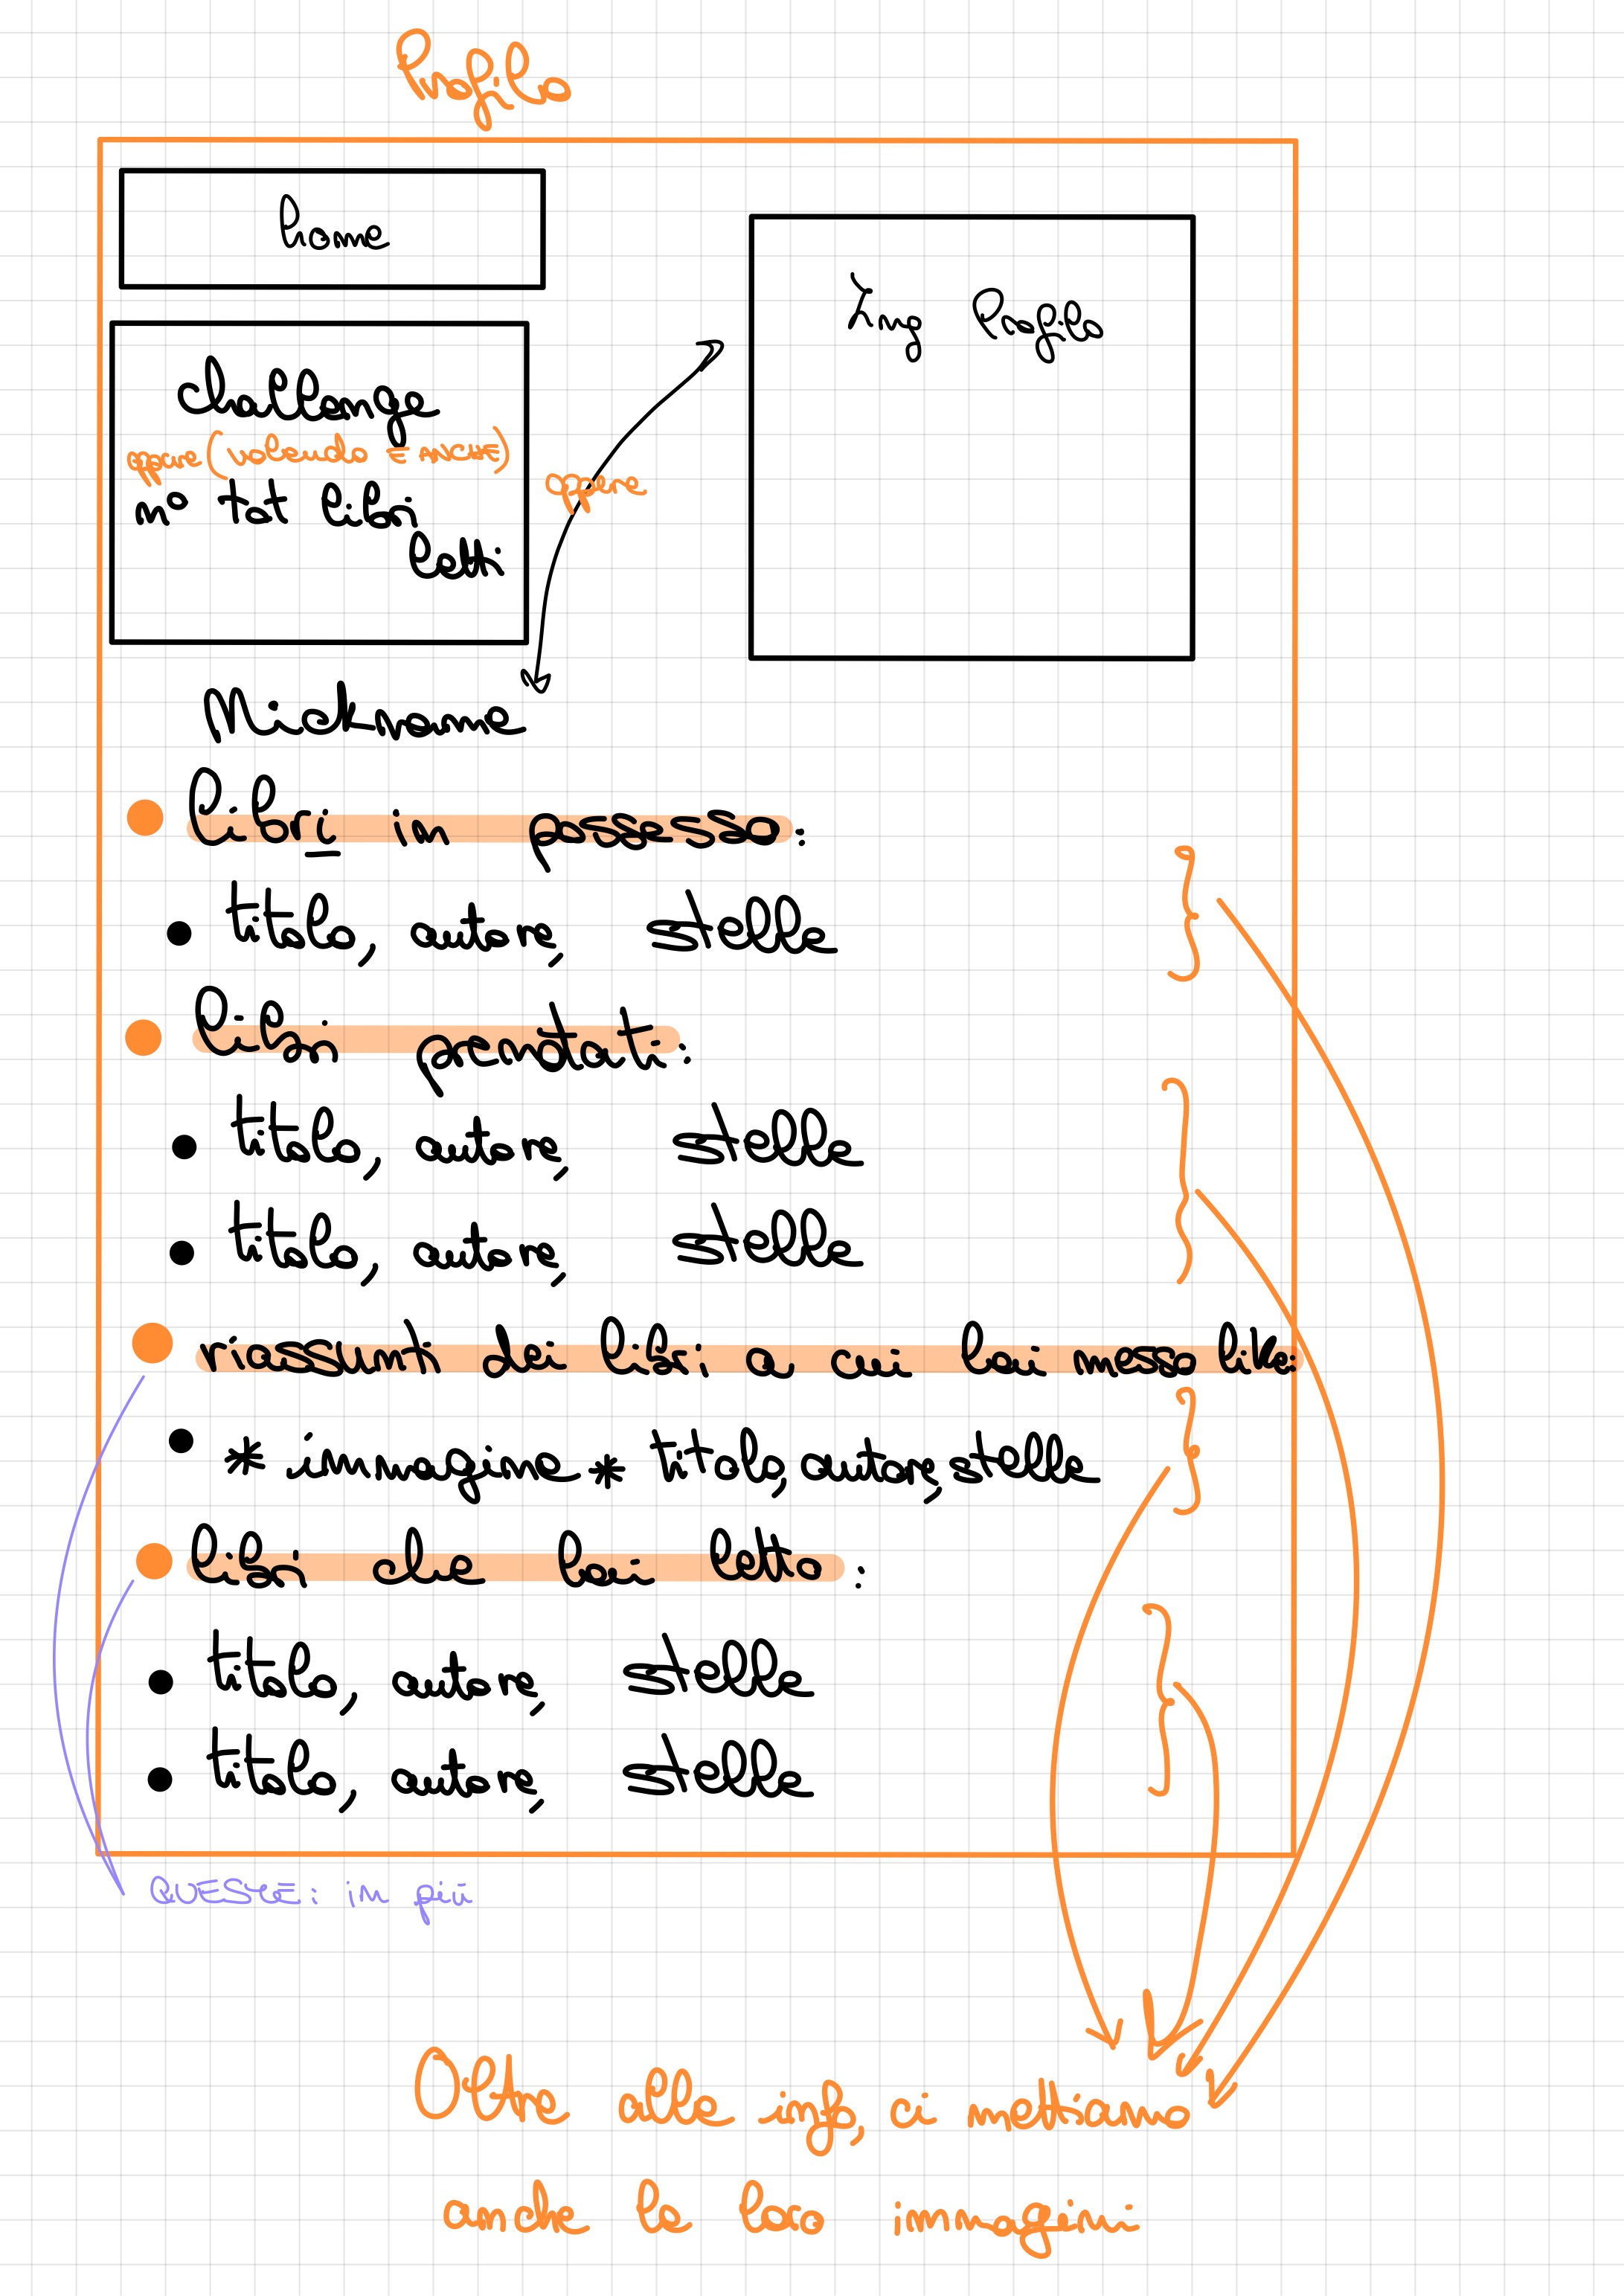 Profilo
home
Img Profilo
challenge
oppure (volendo E ANCHE)
n° tot libri
letti
oppure
Nickname
libri in possesso:
titolo, autore, stelle
libri prenotati:
titolo, autore, stelle
titolo, autore, stelle
riassunti dei libri a cui hai messo like:
* immagine * titolo, autore, stelle
libri che hai letto:
titolo, autore, stelle
titolo, autore, stelle
QUESTE: in più
Oltre alle info, ci mettiamo
anche le loro immagini